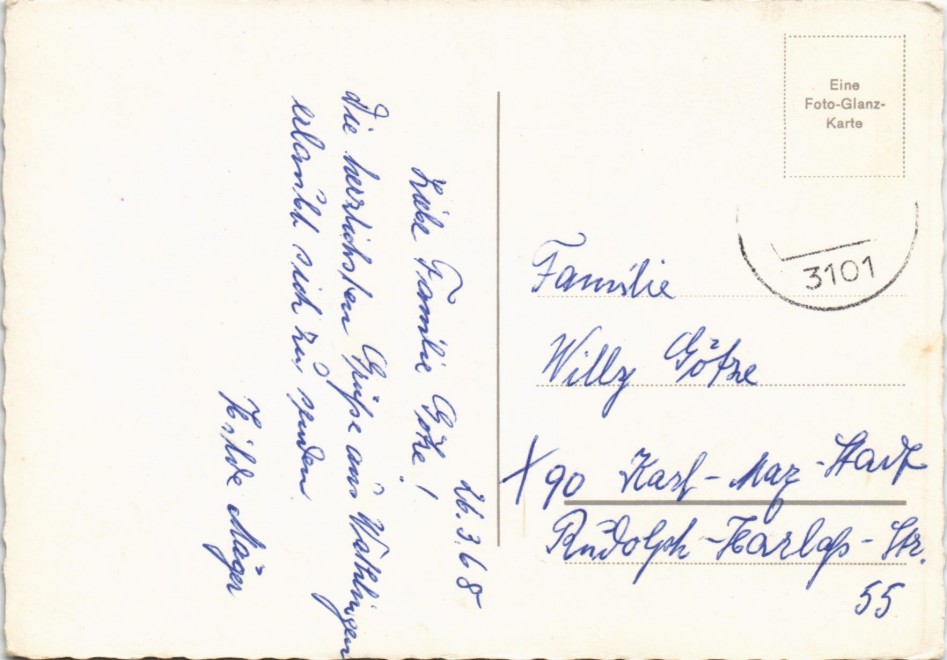 26.3.68
Liebe Familie Götze!
Die herzlichsten Grüße aus Wathlingen
erlaubt sich zu senden
Hilde Mäger
Eine
Foto-Glanz-
Karte
3101
Familie
Willy Götze
X90 Karl-Marx-Stadt
Rudolph-Harlaß-Str.
55